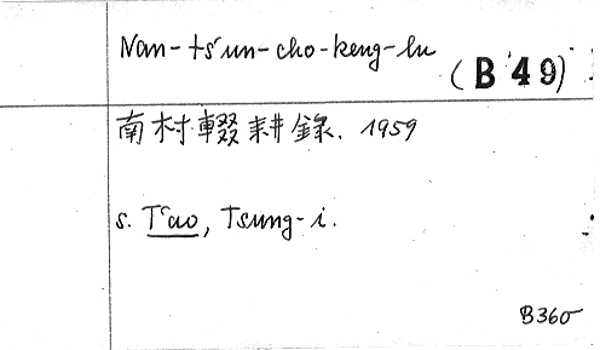 Nan-ts'un-cho-keng-lu
(B 49)
南村輟耕錄. 1959
s. T'ao, Tsung-i.
B360